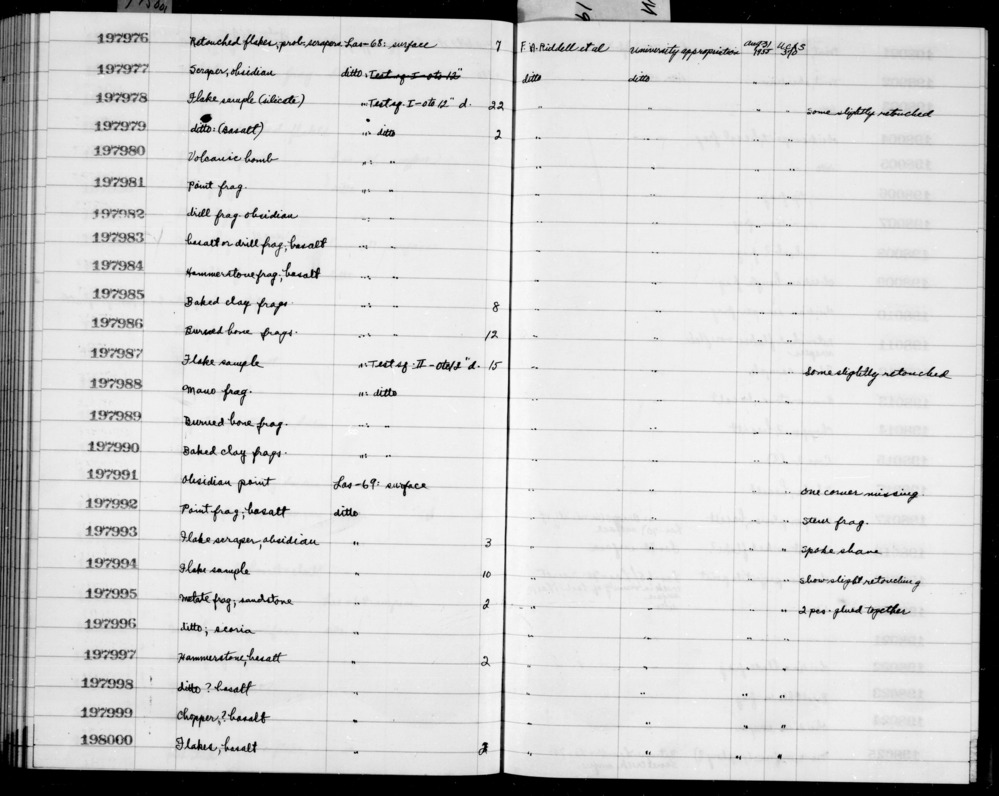 197976 Retouched flakes, prob. scrapers Las-68: surface 7 F. A. Riddell et al university appropriation Aug 31 1955 UCAS
197977 Scraper, obsidian ditto: Test sq. I - 0 to 12" ditto ditto " "
197978 Flake sample (silicate) ": Test sq. I - 0 to 12" d. 22 " " " " some slightly retouched
197979 ditto: (basalt) ": ditto 2 " " " "
197980 Volcanic bomb ": " " " " "
197981 Point frag. ": " " " " "
197982 drill frag. obsidian ": " " " " "
197983 basalt or drill frag; basalt ": " " " " "
197984 Hammerstone frag; basalt ": " " " " "
197985 Baked clay frags. ": " 8 " " " "
197986 Burned bone frags. ": " 12 " " " "
197987 Flake sample ": Test sq. II - 0 to 12" d. 15 " " " " Some slightly retouched
197988 Mano frag. ": ditto " " " "
197989 Burned bone frag. ": " " " " "
197990 Baked clay frags. ": " " " " "
197991 Obsidian point Las-69: surface " " " " one corner missing.
197992 Point frag; basalt ditto " " " " stem frag.
197993 Flake scraper, obsidian " 3 " " " " Spoke shave
197994 Flake sample " 10 " " " " show slight retouching
197995 Metate frag; sandstone " 2 " " " " 2 pcs. glued together
197996 ditto; scoria " " " " "
197997 Hammerstone; basalt " 2 " " " "
197998 ditto ? basalt " " " " "
197999 Chopper,? basalt " " " " "
198000 Flakes; basalt " 2 " " " "